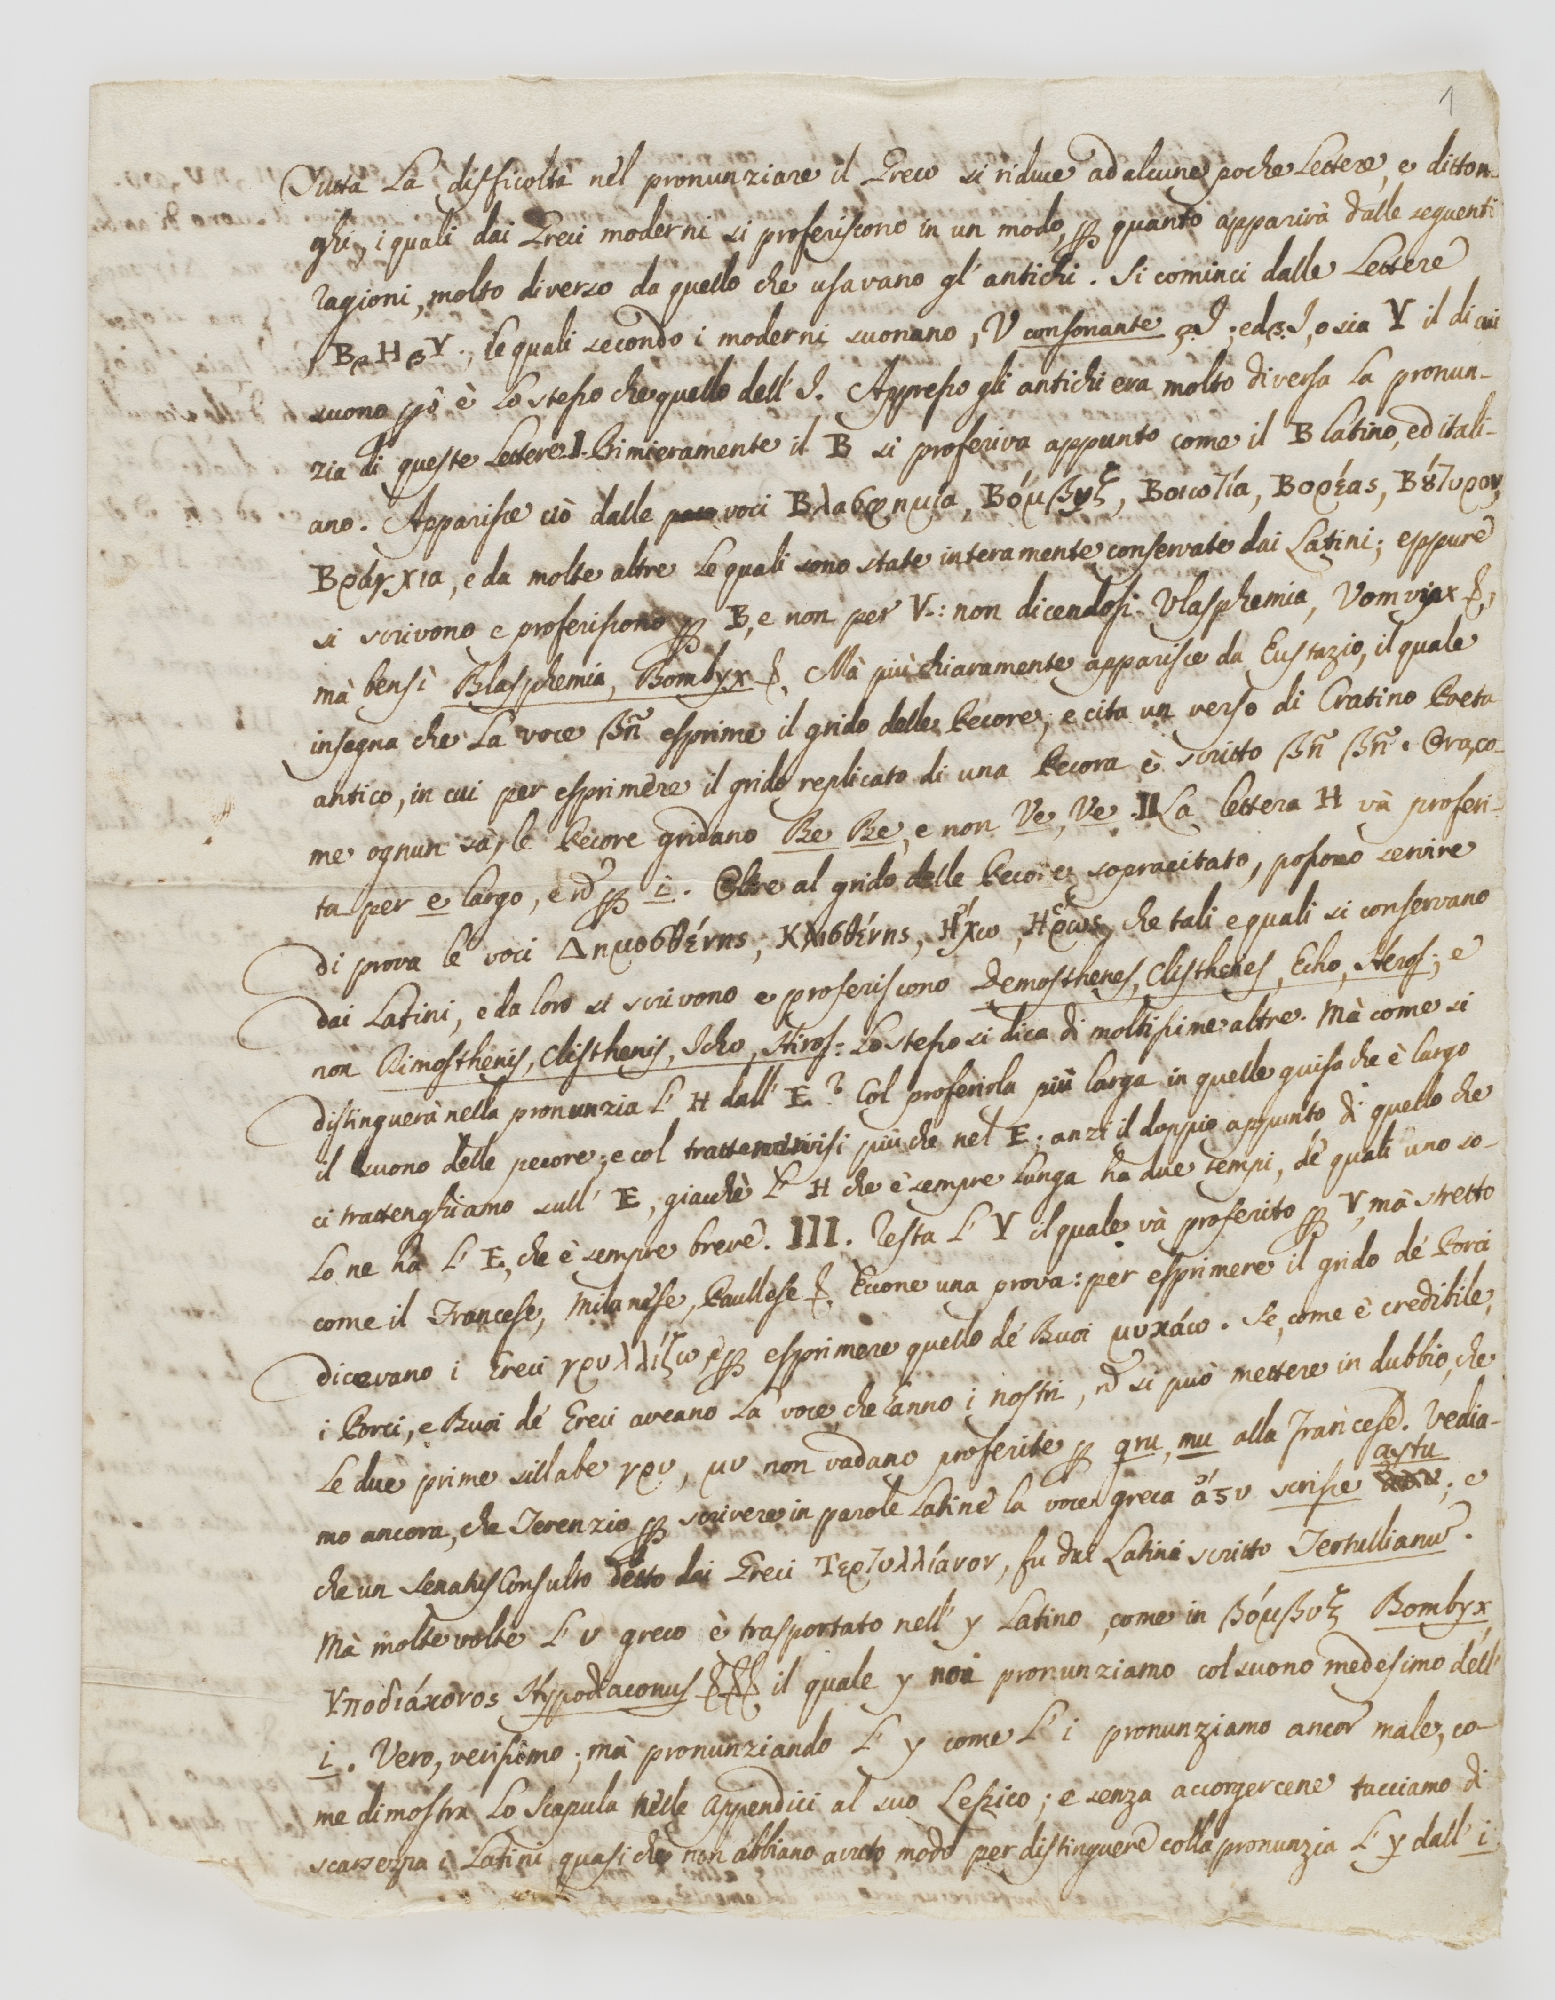 1
Tutta la difficoltà nel pronunziare il Greco si riduce ad alcune poche lettere, e ditton-
ghi, i quali dai Greci moderni si proferiscono in un modo, p quanto apparirà dalle seguenti
ragioni, molto diverso da quello che usavano gl' antichi. Si cominci dalle lettere
B 2 H 3 Y., le quali secondo i moderni suonano, V consonante 2. I; ed 3. I, o sia Y il di cui
suono pò è lo stesso che quello dell' I. Appresso gli antichi era molto diversa la pronun-
zia di queste lettere. I. Primieramente il B si proferiva appunto come il B latino, ed itali-
ano. Apparisce ciò dalle voci Βλασφημία, Βόμβυξ, Βοιωτία, Βορέας, Βούτυρον,
Βράγχια, e da molte altre le quali sono state interamente conservate dai Latini; eppure
si scrivono e proferiscono p B, e non per V.: non dicendosi Vlasphemia, Vomvyx &,
mà bensì Blasphemia, Bombyx &. Mà più chiaramente apparisce da Eustazio, il quale
insegna che la voce βῆ esprime il grido delle Pecore, e cita un verso di Cratino Poeta
antico, in cui per esprimere il grido replicato di una Pecora è scritto βῆ βῆ. Ora, co-
me ognun sà, le Pecore gridano Be Be, e non Ve, Ve. II La lettera H và proferi-
ta per e largo, e nō p i. Oltre al grido delle Pecore sopracitato, possono servire
di prova le voci Δημοσθένης, Κλισθένης, Ἤχω, Ἥρως, che tali e quali si conservano
dai Latini, e da loro si scrivono e proferiscono Demosthenes, Clisthenes, Echo, Heros; e
non Dimosthenis, Clisthenis, Icho, Hiros: Lo stesso si dica di moltissime altre. Mà come si
distinguerà nella pronunzia l' H dall' E? Col proferirla più larga in quelle guisa che è largo
il suono delle pecore; e col trattenervisi più che nel E; anzi il doppio appunto di quello che
ci trattenghiamo sull' E, giacchè l' H che è sempre lunga ha due tempi, de' quali uno so-
lo ne ha l' E, che è sempre breve. III. Resta l' Y il quale và proferito p V, mà stretto
come il Francese, Milanese, Paullese &. Eccone una prova: per esprimere il grido de' Porci
dicevano i Greci γρυλλίζω, e p esprimere quello de' Buoi μυχάω. Se, come è credibile,
i Porci, e Buoi de' Greci aveano la voce che hanno i nostri, nō si può mettere in dubbio, che
le due prime sillabe γρυ, μυ non vadano proferite p gru, mu alla francese. Vedia-
mo ancora, che Terenzio p scrivere in parole Latine la voce greca ἄϛυ scrisse astu; e
che un Senatus Consulto detto dai Greci Τερτυλλίανον, fu dai Latini scritto Tertullianū.
Mà molte volte l' υ greco è trasportato nell' y Latino, come in βόμβυξ Bombyx,
Υποδιάχονος Hypodiaconus &&& il quale y noi pronunziamo col suono medesimo dell'
i. Vero, verissimo; mà pronunziando l' y come l' i pronunziamo ancor male, co-
me dimostra lo Scapula nelle Appendici al suo Lessico; e senza accorgercene tacciamo di
scarsezza i Latini, quasi chè non abbiano avuto modo per distinguere colla pronunzia l' y dall' i